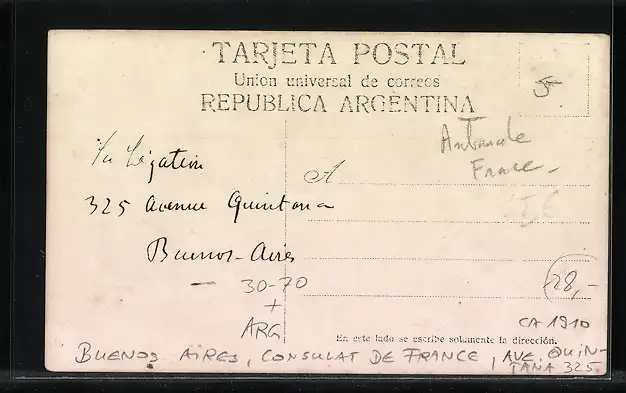 TARJETA POSTAL
Union universal de correos
REPUBLICA ARGENTINA
France
La Légation
A
325 Avenue Quintana
Buenos-Aires
30-70
+
ARG
28,-
CA 1910
En este lado se escribe solamente la dirección.
BUENOS AIRES, CONSULAT DE FRANCE, AVE. QUIN-
TANA 325